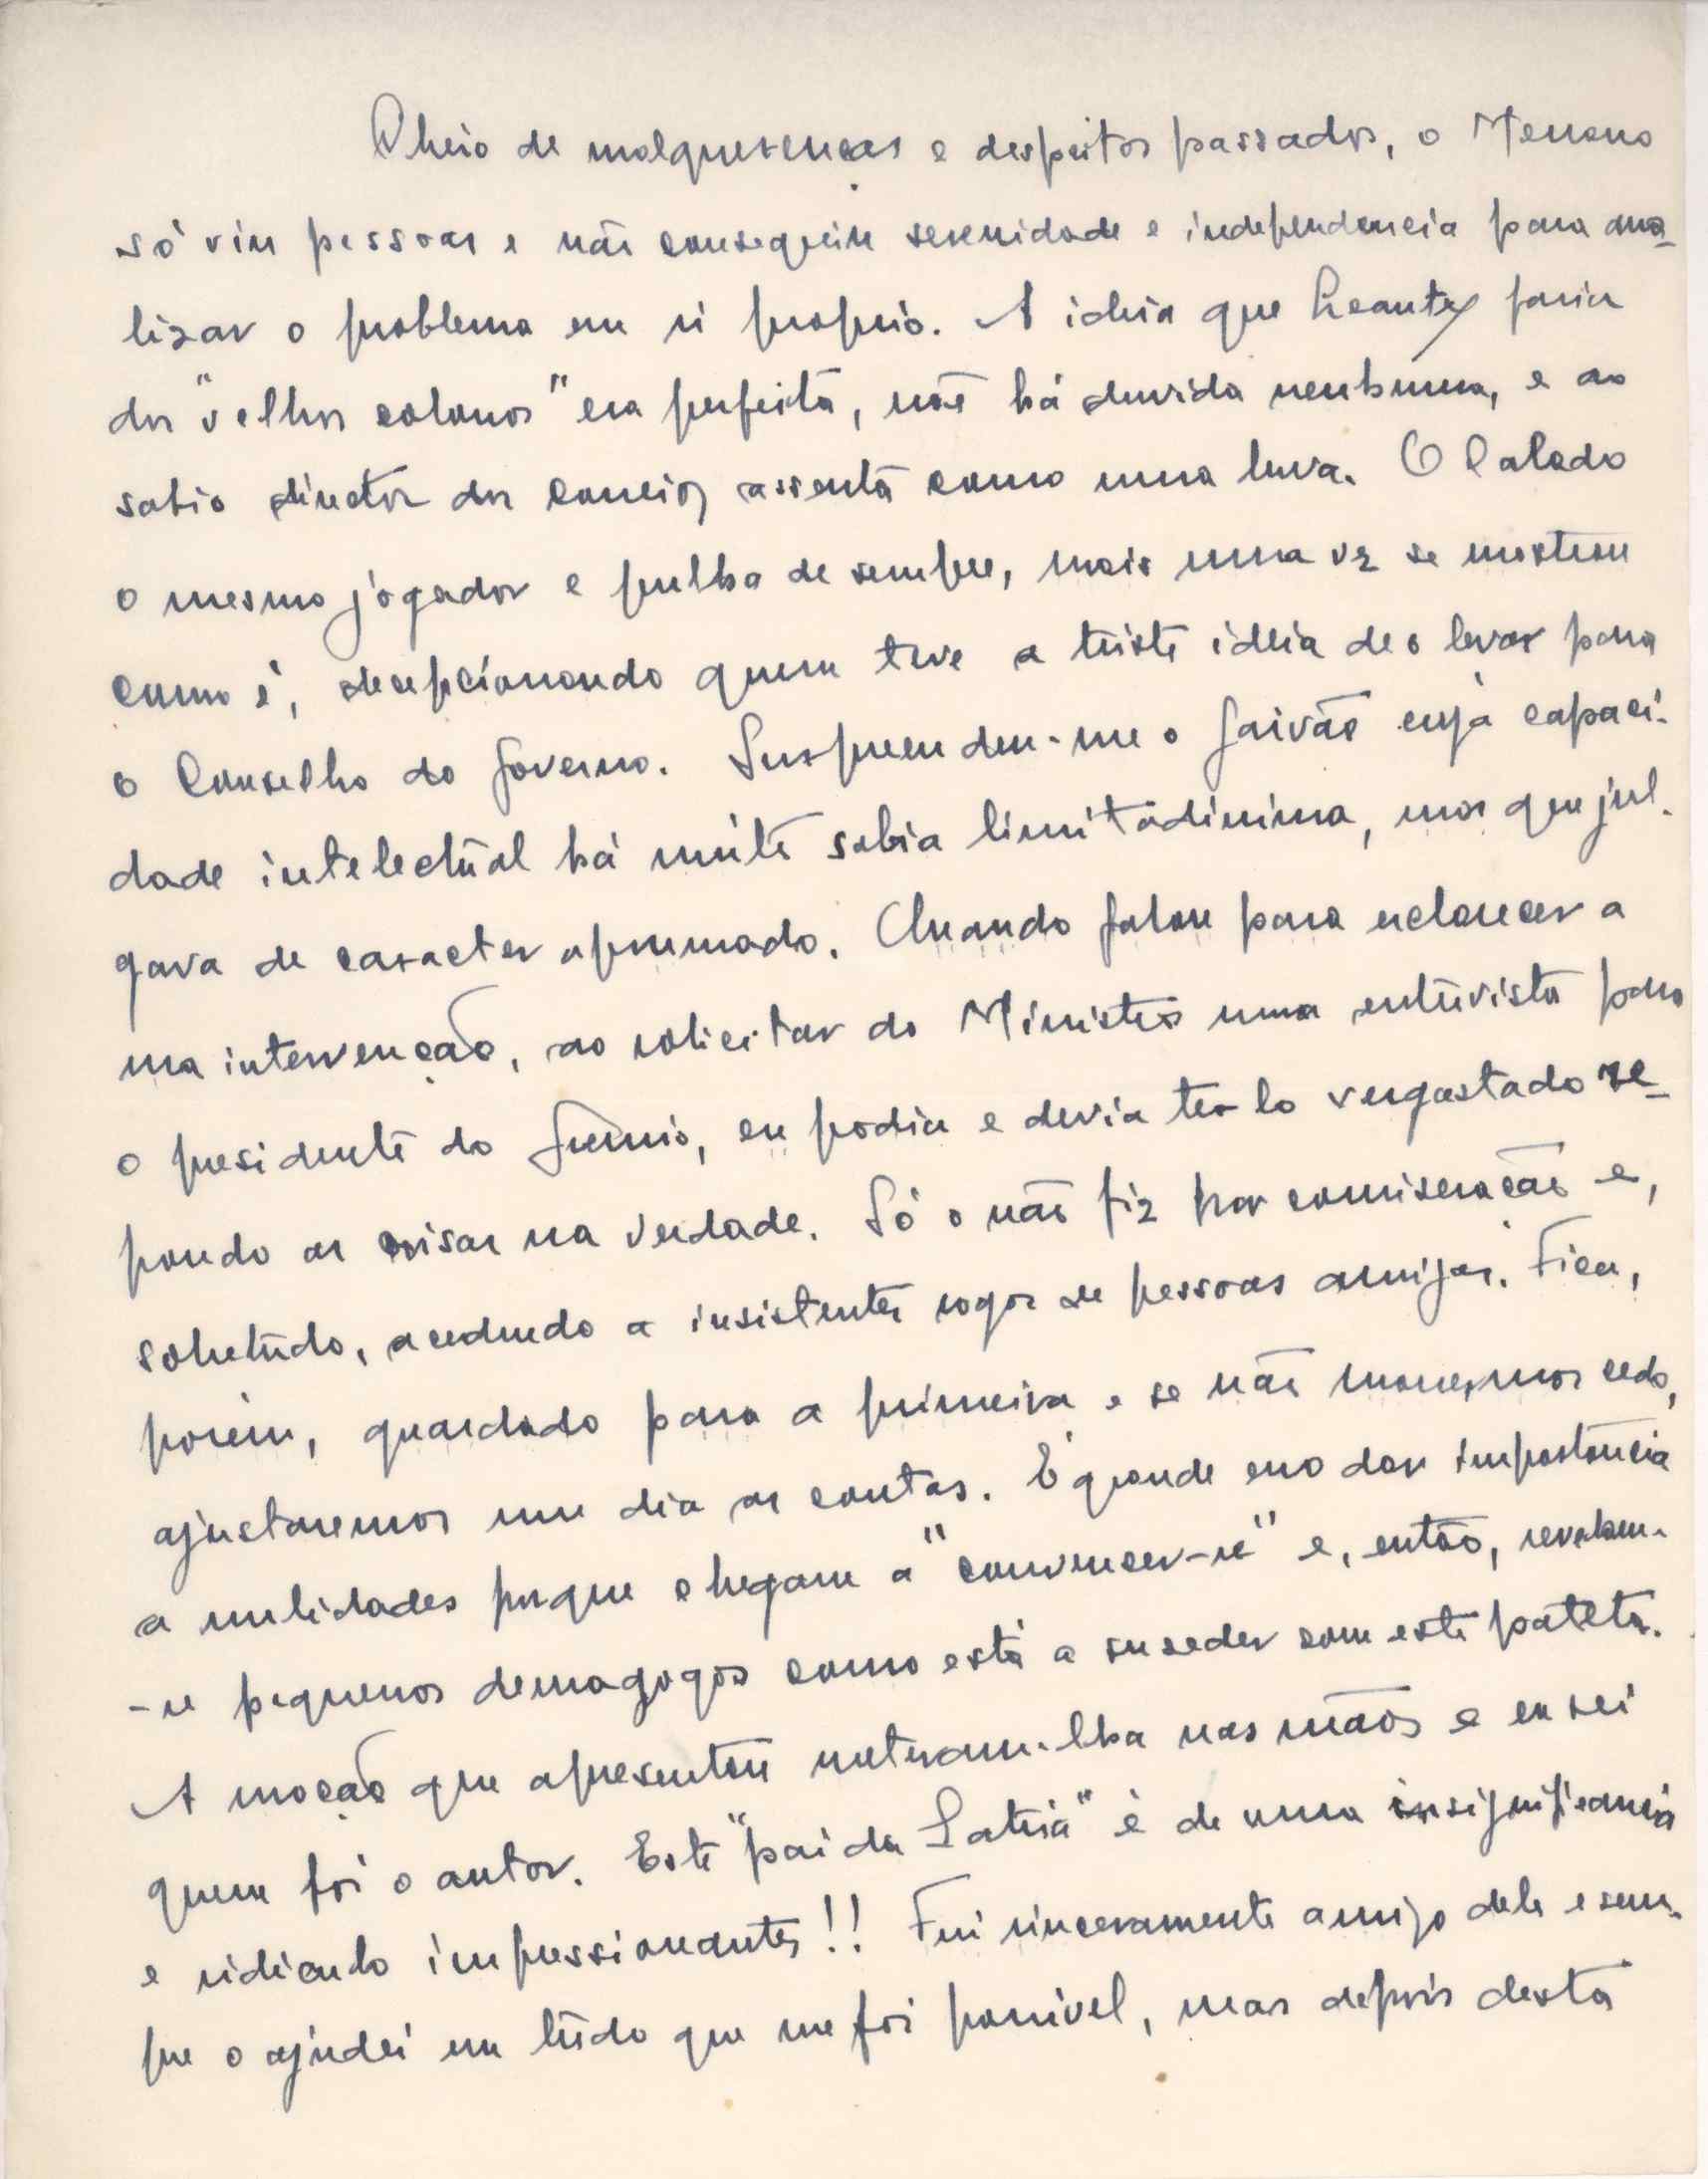 Cheio de malquerenças e despeitos passados, o Menano
só viu pessoas e não conseguiu serenidade e independencia para ana-
lizar o problema em si proprio. A ideia que Leauty fazia
dos "velhos colonos" era perfeita, não há duvida nenhuma, e ao
sabio director dos correios assenta como uma luva. O Calado
o mesmo jogador e pulha de sempre, mais uma vez se mostrou
como é, decepcionando quem teve a triste ideia de o levar para
o Conselho do Governo. Surpreendeu-me o Gaivão cuja capaci-
dade intelectual há muito sabia limitadissima, mas que jul-
gava de caracter aprumado. Quando falou para esclarecer a
sua intervenção, ao solicitar do Ministro uma entrevista para
o presidente do Grémio, eu podia e devia te-lo vergastado re-
pondo as coisas na verdade. Só o não fiz por comiseração e,
sobretudo, acedendo a insistentes rogos de pessoas amigas. Fica,
porém, guardado para a primeira e se não morrermos cedo,
ajustaremos um dia as contas. É grande erro dar importancia
a nulidades porque chegam a "convencer-se" e, então, revelam-
-se pequenos demagogos como está a suceder com este pateta.
A moção que apresentou meteram-lha nas mãos e eu sei
quem foi o autor. Este "pai da Patria" é de uma insignificancia
e ridiculo impressionantes!! Fui sinceramente amigo dele e sem-
pre o ajudei em tudo que me foi possivel, mas depois desta